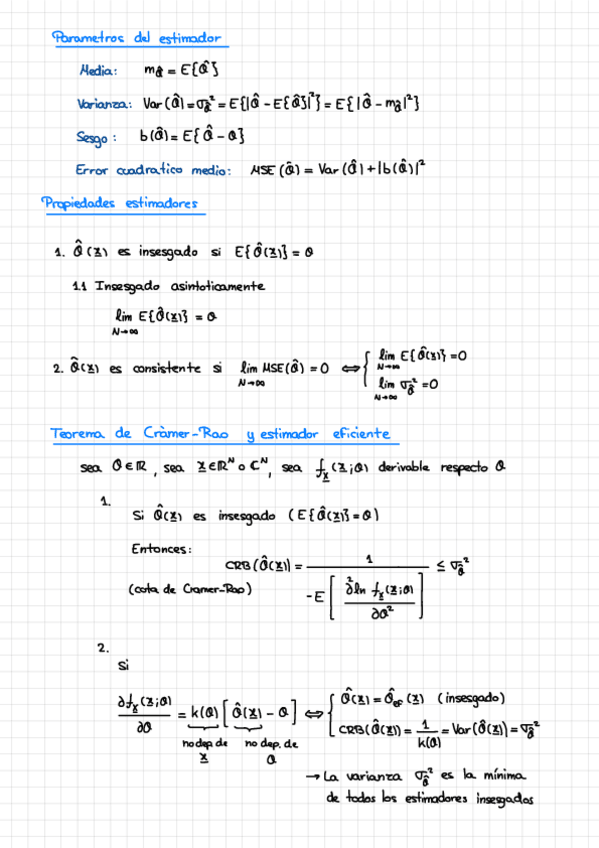 Parametros del estimador
Media: m_θ̂ = E{θ̂}
Varianza: Var(θ̂) = σ_θ̂² = E{|θ̂ - E{θ̂}|²} = E{|θ̂ - m_θ̂|²}
Sesgo: b(θ̂) = E{θ̂ - θ}
Error cuadratico medio: MSE(θ̂) = Var(θ̂) + |b(θ̂)|²
Propiedades estimadores
1. θ̂(x) es insesgado si E{θ̂(x)} = θ
1.1 Insesgado asintoticamente
lim E{θ̂(x)} = θ
N→∞
2. θ̂(x) es consistente si lim MSE(θ̂) = 0 ⇔ { lim E{θ̂(x)} = 0
N→∞ N→∞
lim σ_θ̂² = 0
N→∞
Teorema de Cràmer-Rao y estimador eficiente
sea θ ∈ ℝ, sea x ∈ ℝᴺ o ℂᴺ, sea f_x(x;θ) derivable respecto θ
1.
Si θ̂(x) es insesgado (E{θ̂(x)} = θ)
Entonces:
CRB(θ̂(x)) = 1 / -E[∂² ln f_x(x;θ) / ∂θ²] ≤ σ_θ̂²
(cota de Cramer-Rao)
2.
Si
∂f_x(x;θ) / ∂θ = k(θ) [θ̂(x) - θ] ⇔ { θ̂(x) = θ̂_ef(x) (insesgado)
CRB(θ̂(x)) = 1 / k(θ) = Var(θ̂(x)) = σ_θ̂²
no dep de x no dep. de θ
→ La varianza σ_θ̂² es la mínima
de todos los estimadores insesgados